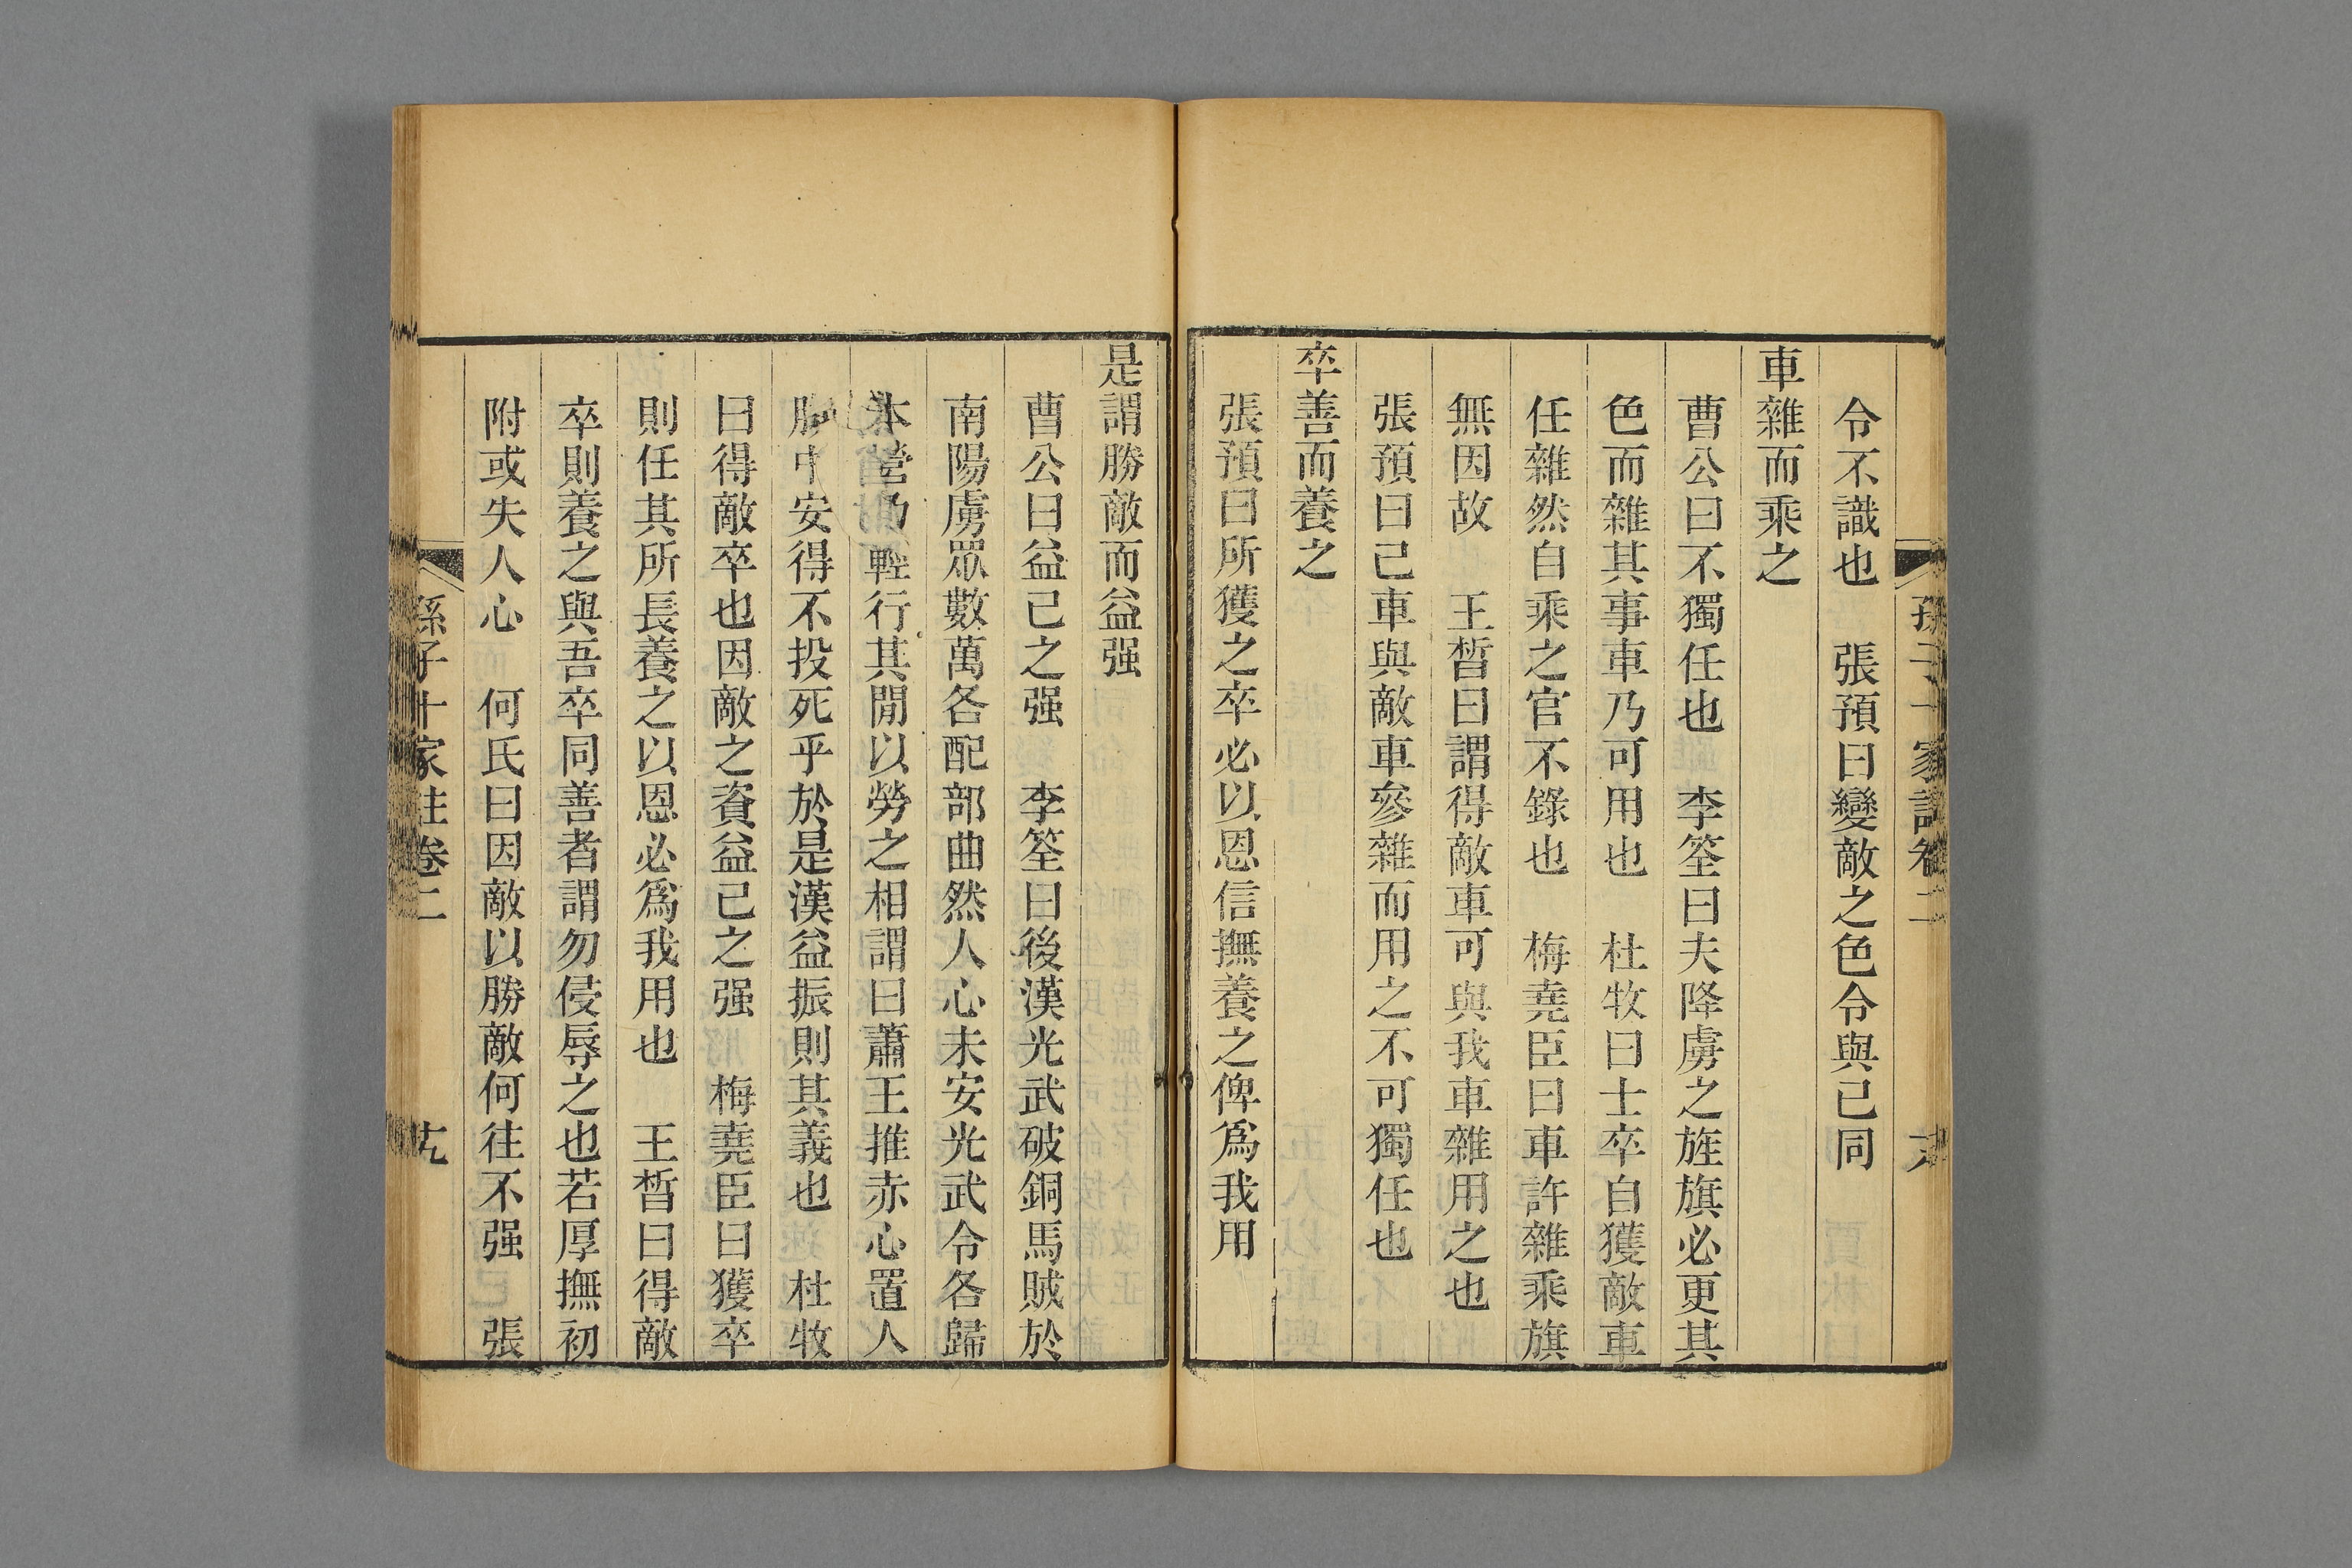 孫子十家註卷二
六
令不識也　張預曰變敵之色令與己同
車雜而乘之
曹公曰不獨任也　李筌曰夫降虜之旌旗必更其
色而雜其事車乃可用也　杜牧曰士卒自獲敵車
任雜然自乘之官不錄也　梅堯臣曰車許雜乘旗
無因故　王晳曰謂得敵車可與我車雜用之也
張預曰己車與敵車參雜而用之不可獨任也
卒善而養之
張預曰所獲之卒必以恩信撫養之俾爲我用
是謂勝敵而益强
曹公曰益己之强　李筌曰後漢光武破銅馬賊於
南陽虜眾數萬各配部曲然人心未安光武令各歸
本營乃輕行其閒以勞之相謂曰蕭王推赤心置人
腹中安得不投死乎於是漢益振則其義也　杜牧
曰得敵卒也因敵之資益己之强　梅堯臣曰獲卒
則任其所長養之以恩必爲我用也　王晳曰得敵
卒則養之與吾卒同善者謂勿侵辱之也若厚撫初
附或失人心　何氏曰因敵以勝敵何往不强　張
孫子十家註卷二